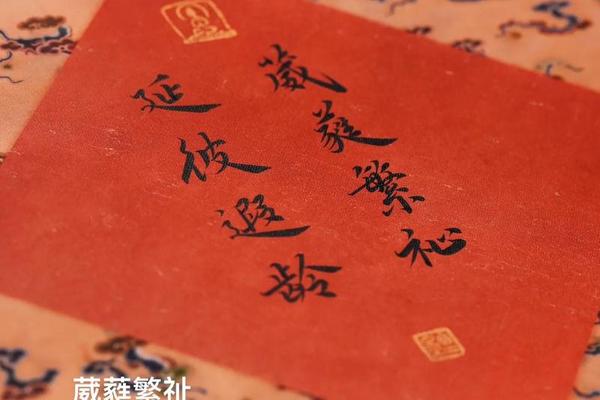 葳蕤繁祉
延彼遐龄
葳蕤繁祉